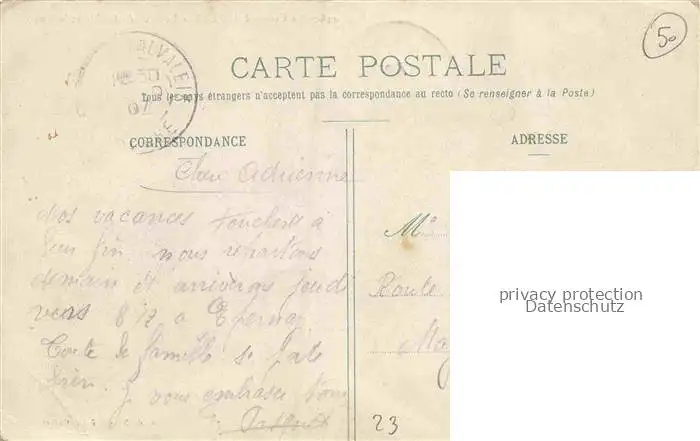 50
CARTE POSTALE
Tous les pays étrangers n'acceptent pas la correspondance au recto (Se renseigner à la Poste)
CORRESPONDANCE
ADRESSE
Adrienne
Nos vacances touchent à
leur fin nous repartons
demain et arrivons jeudi
vers 8 1/2 a Epernay
Toute la famille se porte
bien. J vous embrasse tous
M
Route
23
privacy protection
Datenschutz